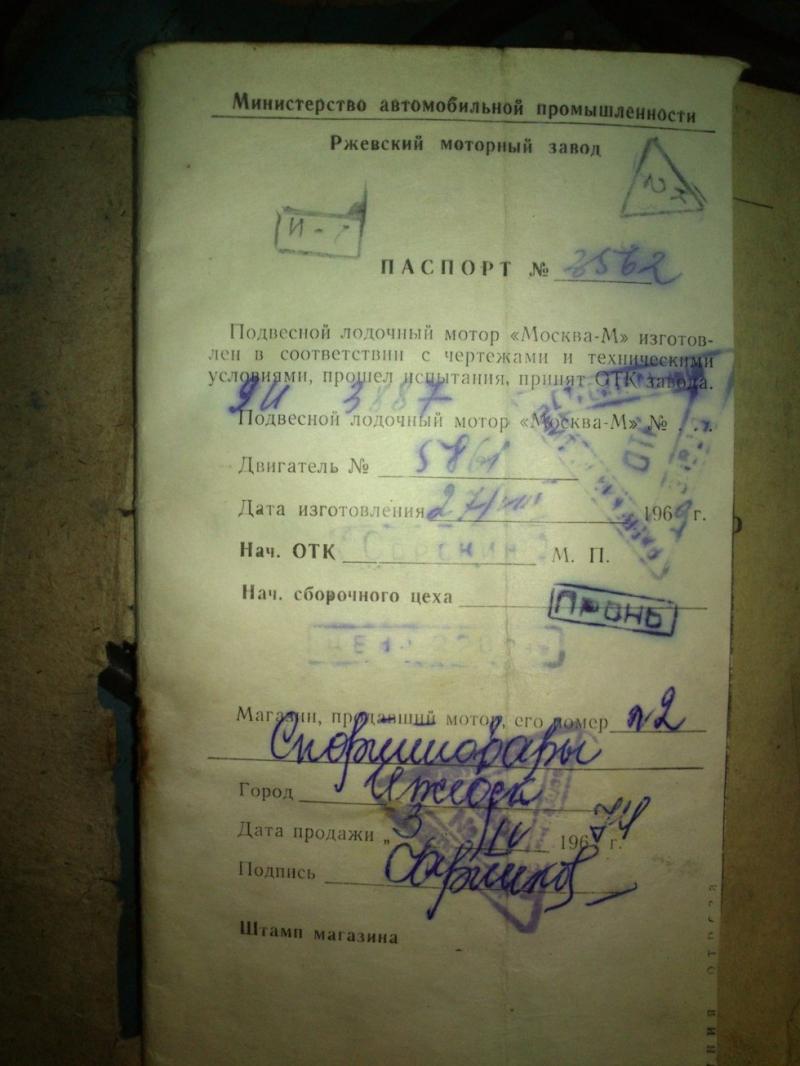 Министерство автомобильной промышленности
Ржевский моторный завод
И-
ПАСПОРТ № 3562
Подвесной лодочный мотор «Москва-М» изготов-
лен в соответствии с чертежами и техническими
условиями, прошел испытания, принят ОТК завода.
9И 3887
Подвесной лодочный мотор «Москва-М» № . . .
Двигатель № 5861
Дата изготовления 27/VIII 1969 г.
Нач. ОТК М. П.
Нач. сборочного цеха ПРОНЬ
Магазин, продавший мотор, его номер №2
Спорттовары
Город Ижевск
Дата продажи „3 IV 196 74 г.
Подпись
Штамп магазина